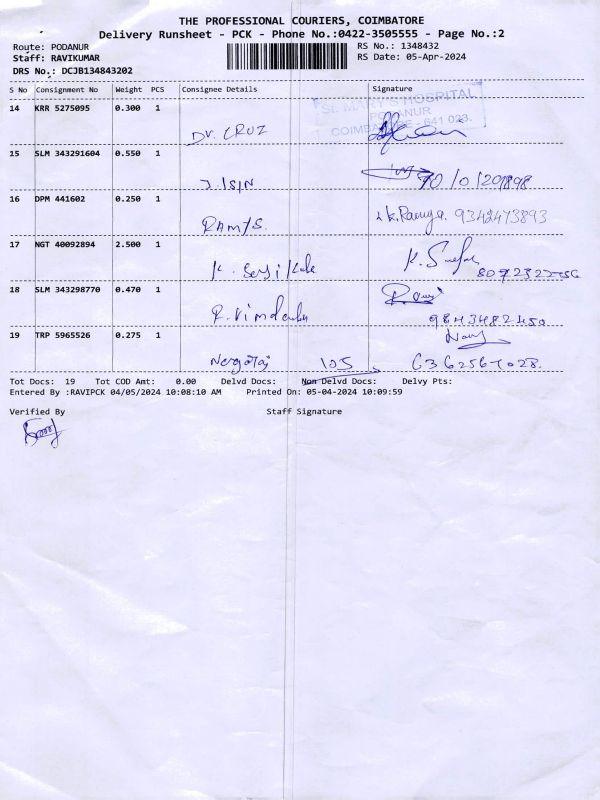 THE PROFESSIONAL COURIERS, COIMBATORE
Delivery Runsheet - PCK - Phone No.:0422-3505555 - Page No.:2
Route: PODANUR
RS No.: 1348432
Staff: RAVIKUMAR
RS Date: 05-Apr-2024
DRS No.: DCJB134843202
S No Consignment No Weight PCS Consignee Details Signature
ST. MARY'S HOSPITAL
PODANUR
COIMBATORE - 641 023.
14 KRR 5275095 0.300 1
Dr. CRUZ
15 SLM 343291604 0.550 1
16 DPM 441602 0.250 1
9342473893
17 NGT 40092894 2.500 1
18 SLM 343298770 0.470 1
9843482450
19 TRP 5965526 0.275 1
105
Tot Docs: 19 Tot COD Amt: 0.00 Delvd Docs: Non Delvd Docs: Delvy Pts:
Entered By :RAVIPCK 04/05/2024 10:08:10 AM Printed On: 05-04-2024 10:09:59
Verified By Staff Signature